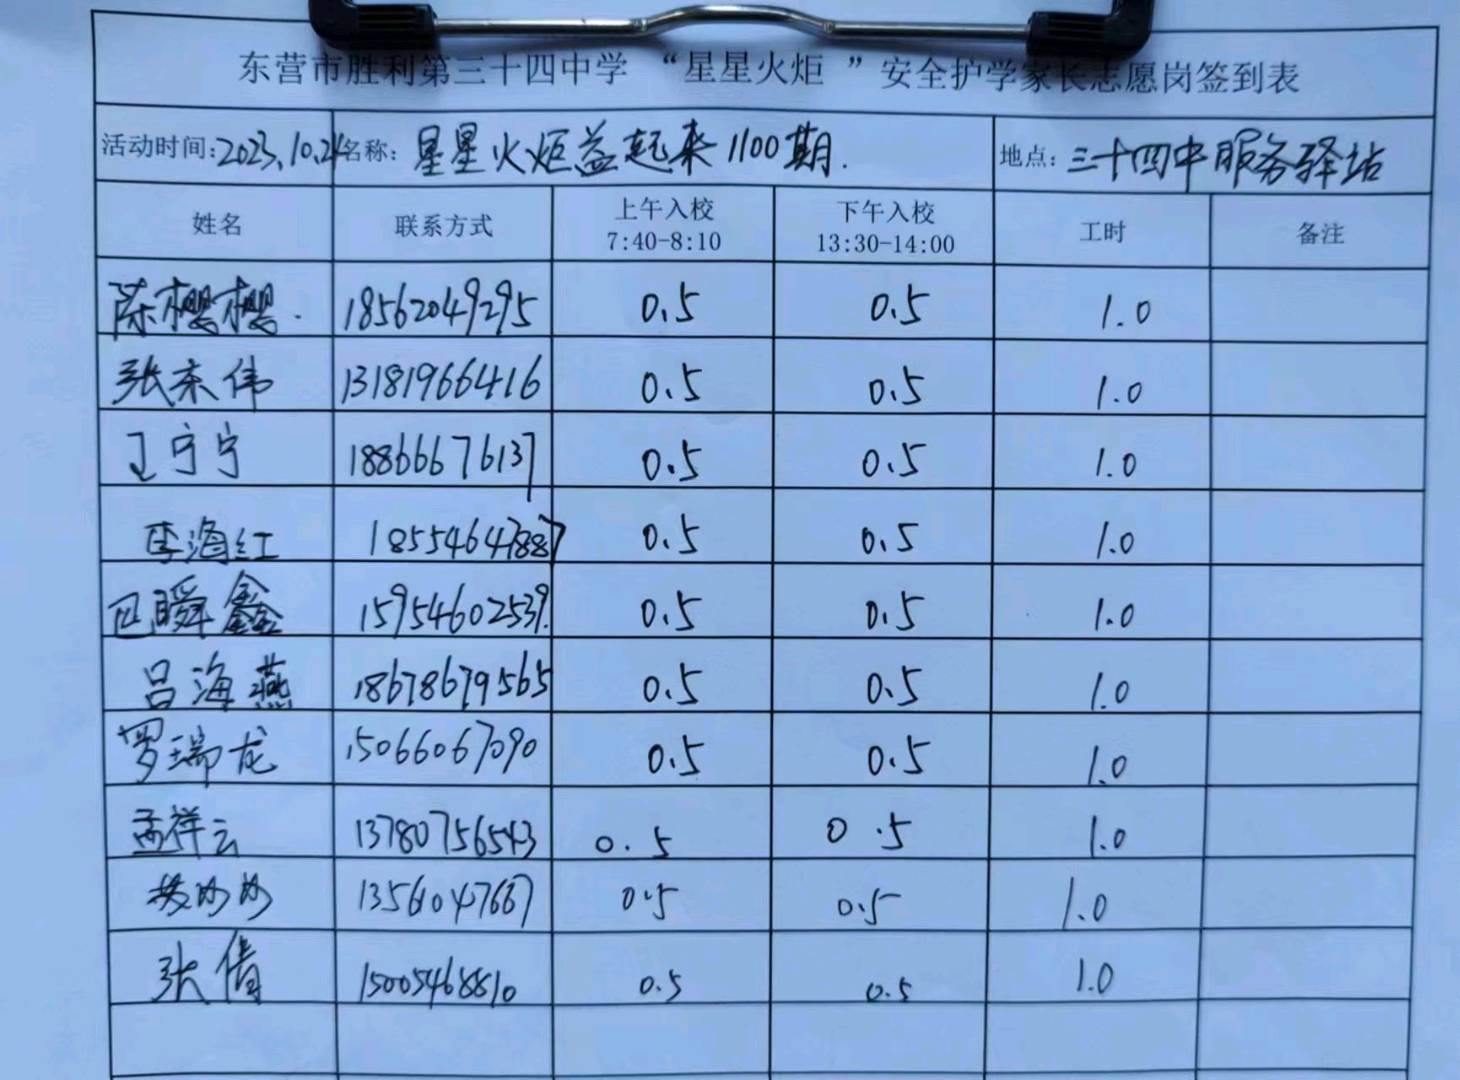 东营市胜利第三十四中学 “星星火炬 ”安全护学家长志愿岗签到表
活动时间:2023.10.24 名称: 星星火炬益起来1100期. 地点: 三十四中服务驿站
姓名 联系方式 上午入校 下午入校 工时 备注
7:40-8:10 13:30-14:00
陈樱樱. 18562049295 0.5 0.5 1.0
张东伟 13181966416 0.5 0.5 1.0
宁宁 18866676137 0.5 0.5 1.0
李海红 0.5 0.5 1.0
瞬鑫 15954602539. 0.5 0.5 1.0
吕海燕 18678679565 0.5 0.5 1.0
罗瑞龙 15066067090 0.5 0.5 1.0
孟祥云 13780756543 0.5 0.5 1.0
妙妙 0.5 0.5 1.0
张倩 15005468810 0.5 0.5 1.0